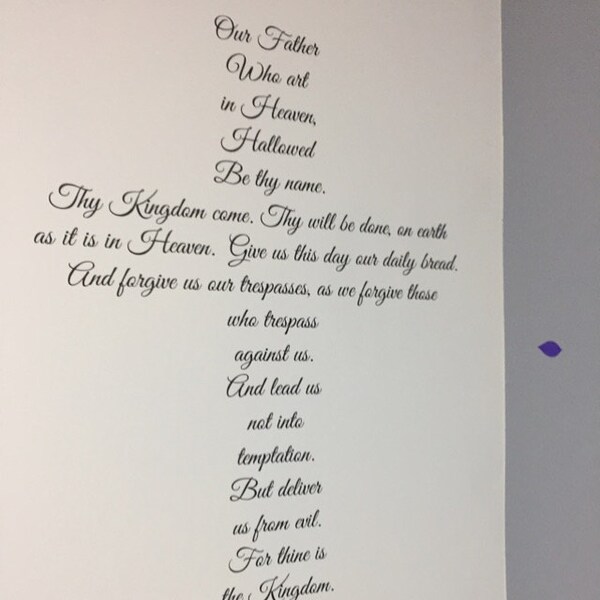 Our Father
Who art
in Heaven,
Hallowed
Be thy name.
Thy Kingdom come. Thy will be done, on earth
as it is in Heaven. Give us this day our daily bread.
And forgive us our trespasses, as we forgive those
who trespass
against us.
And lead us
not into
temptation.
But deliver
us from evil.
For thine is
the Kingdom.